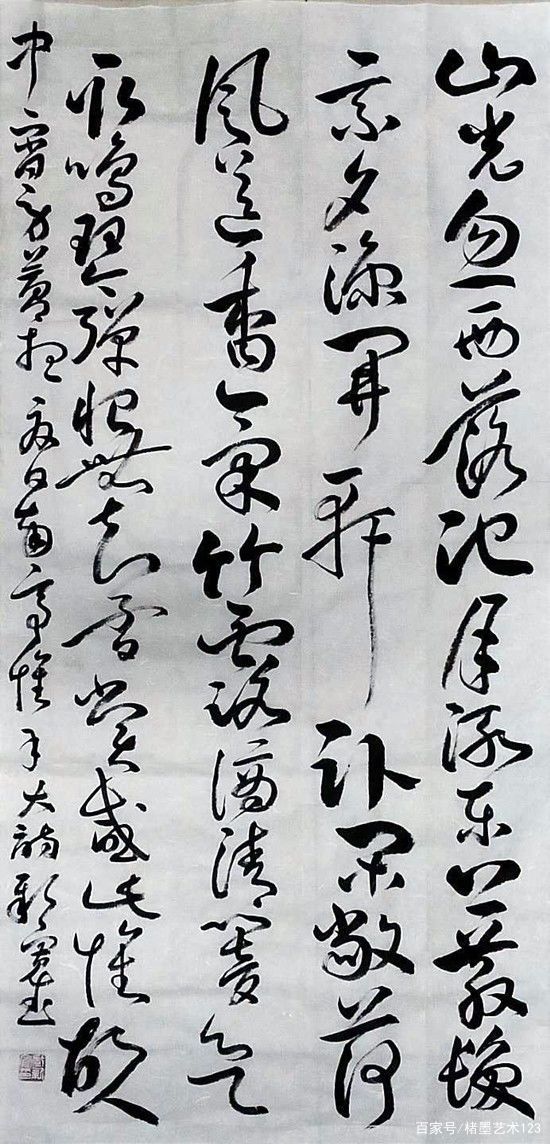 山光忽西落池月渐东上散发
乘夕凉开轩卧闲敞荷
风送香气竹露滴清响欲
取鸣琴弹恨无知音赏感此怀故人
中宵劳梦想夏日南亭怀辛大诗书
百家号/楮墨艺术123